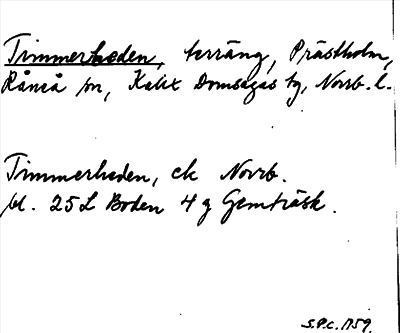 Timmerheden, terräng, Prästholm,
Råneå sn, Kalix Domsagas tg, Norrb. l.
Timmerheden, ek Norrb.
bl. 25L Boden 4 g Gemträsk.
S.P.C. 1759.